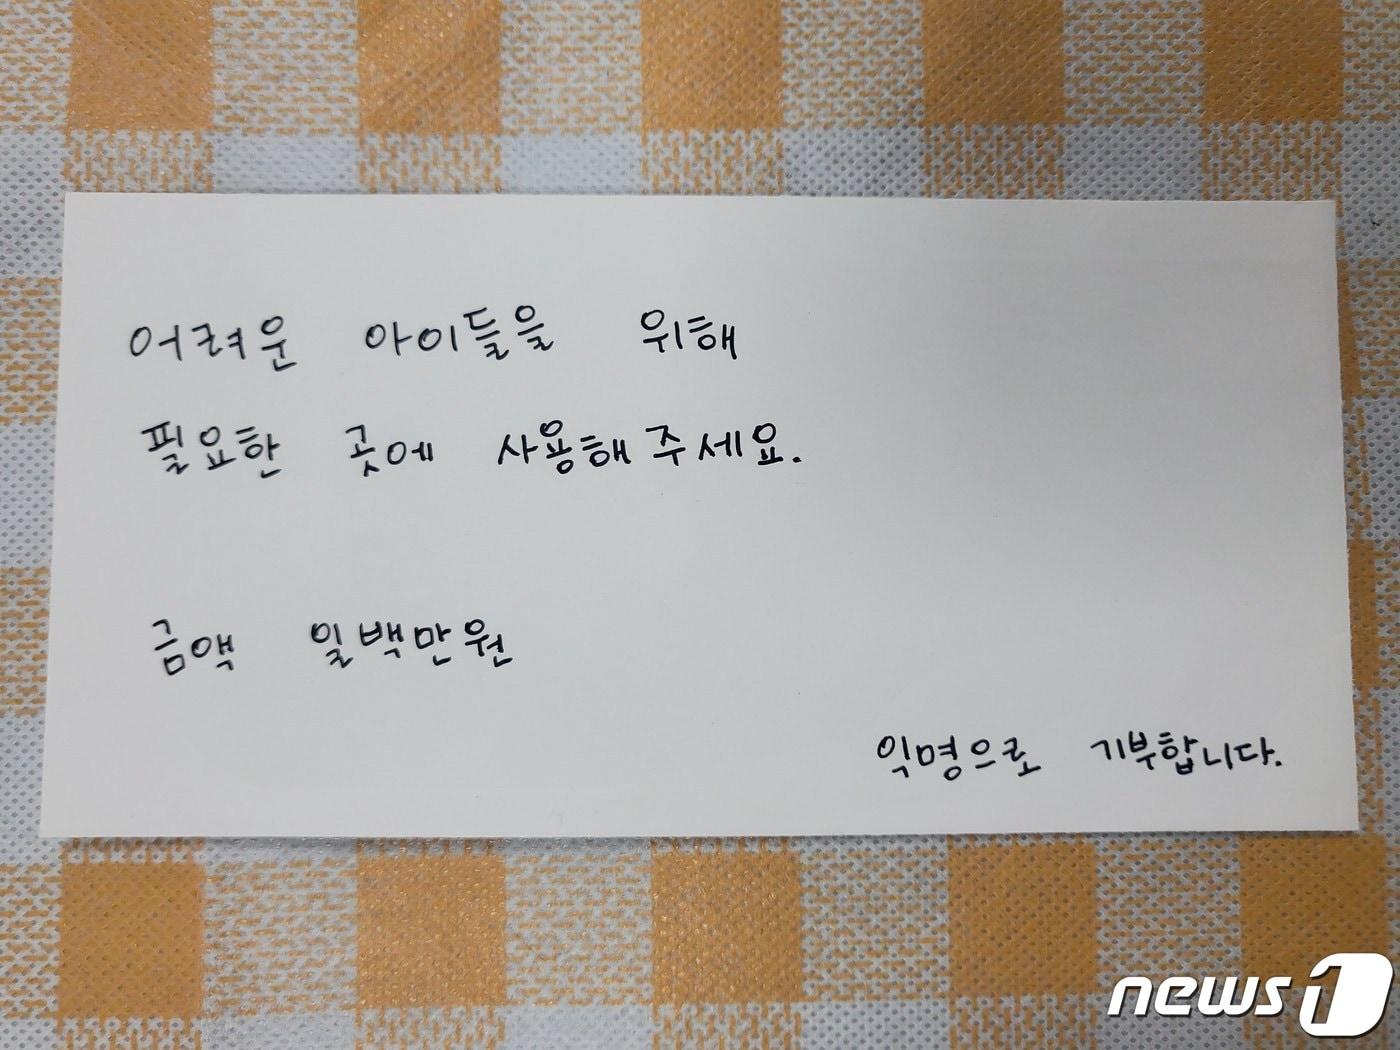 어려운 아이들을 위해
필요한 곳에 사용해 주세요.
금액 일백만원
익명으로 기부합니다.
news1